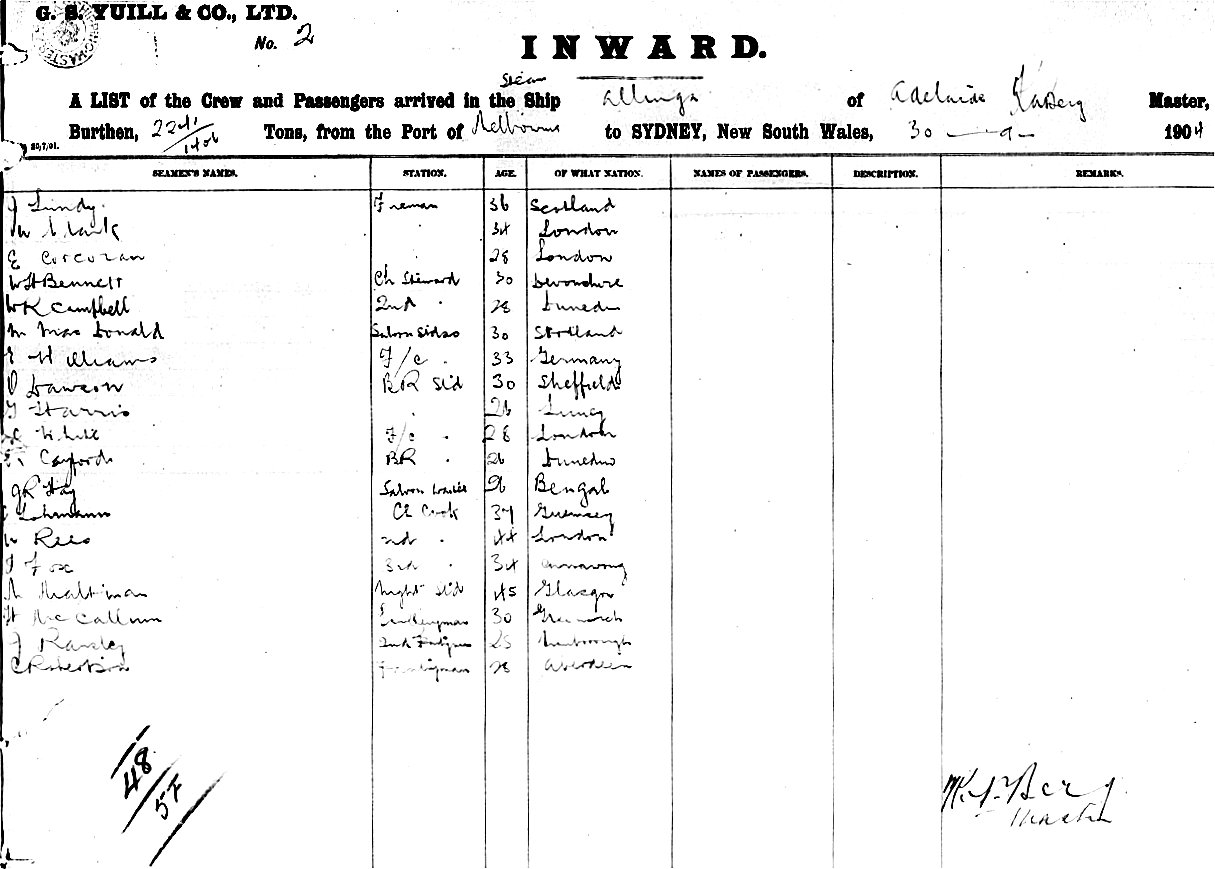 G. S. YUILL & CO., LTD.
No. 2
INWARD.
Steam
A LIST of the Crew and Passengers arrived in the Ship Allinga of Adelaide Berg Master,
Burthen, 2241/1406 Tons, from the Port of Melbourne to SYDNEY, New South Wales, 30-9- 1904
SEAMEN'S NAMES. STATION. AGE. OF WHAT NATION. NAMES OF PASSENGERS. DESCRIPTION. REMARKS.
J Lundy. Fireman 36 Scotland
W Clark " 34 London
E Corcoran " 28 London
W H Bennett Ch Steward 30 Devonshire
W K Campbell 2nd " 28 Dunedin
M MacDonald Saloon Stdss 30 Scotland
E Williams F/c " 33 Germany
D Dawson BR Std 30 Sheffield
G Harris " 26
White F/c " 28 London
Cayford BR " 26 Dunedin
J R Hay Saloon Waiter 26 Bengal
Lohmann Ch Cook 37 Guernsey
W Rees 2nd " 44 London
J Fox 3rd " 34
Maltman Night Std 45 Glasgow
H McCallum 30 Greenock
J 2nd 25
C Robertson 28 Aberdeen
48/57
Berg
Master